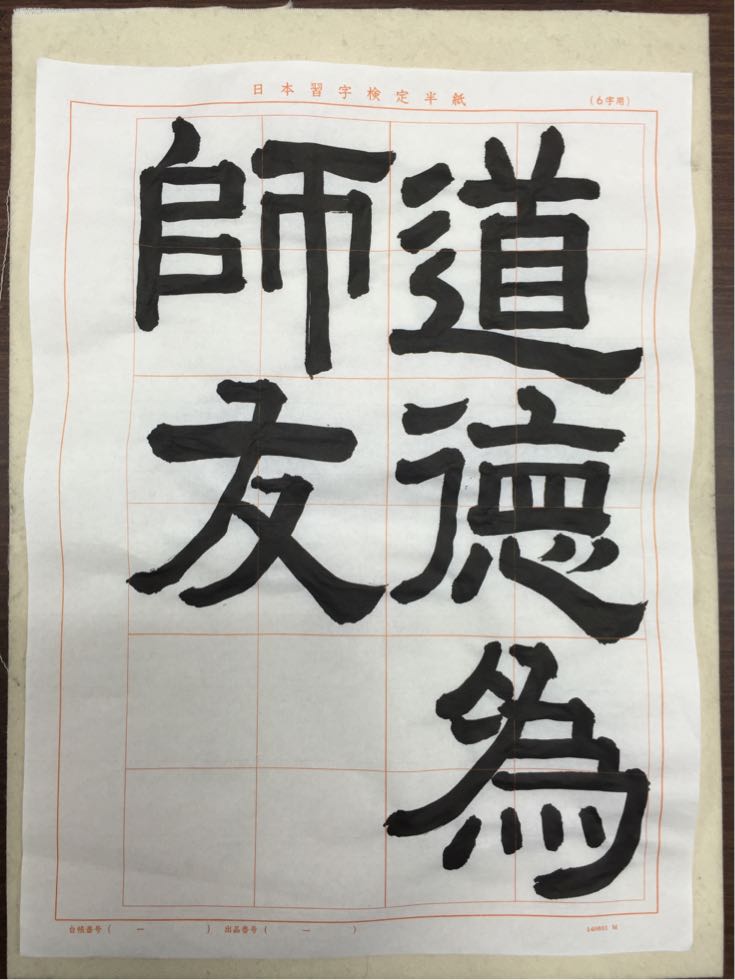 日本習字検定半紙
(6字用)
道德為
師友
台帳番号 ( ー )
出品番号 ( ー )
140801 M